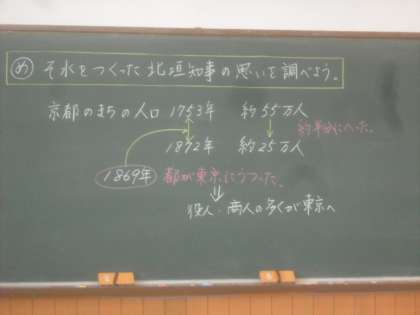 め そ水をつくった北垣知事の思いを調べよう。
京都のまちの人口 1753年 約55万人
約半分にへった。
1872年 約25万人
1869年 都が東京にうつった。
役人・商人の多くが東京へ